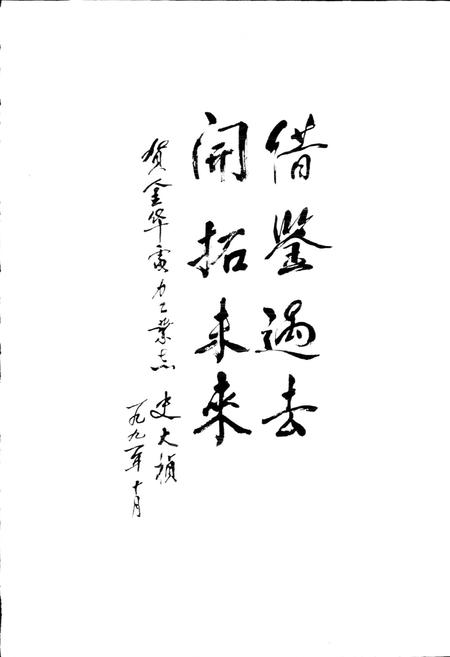 借鉴過去
開拓未來
贺金华电力工業志
史大桢
一九九一年十月